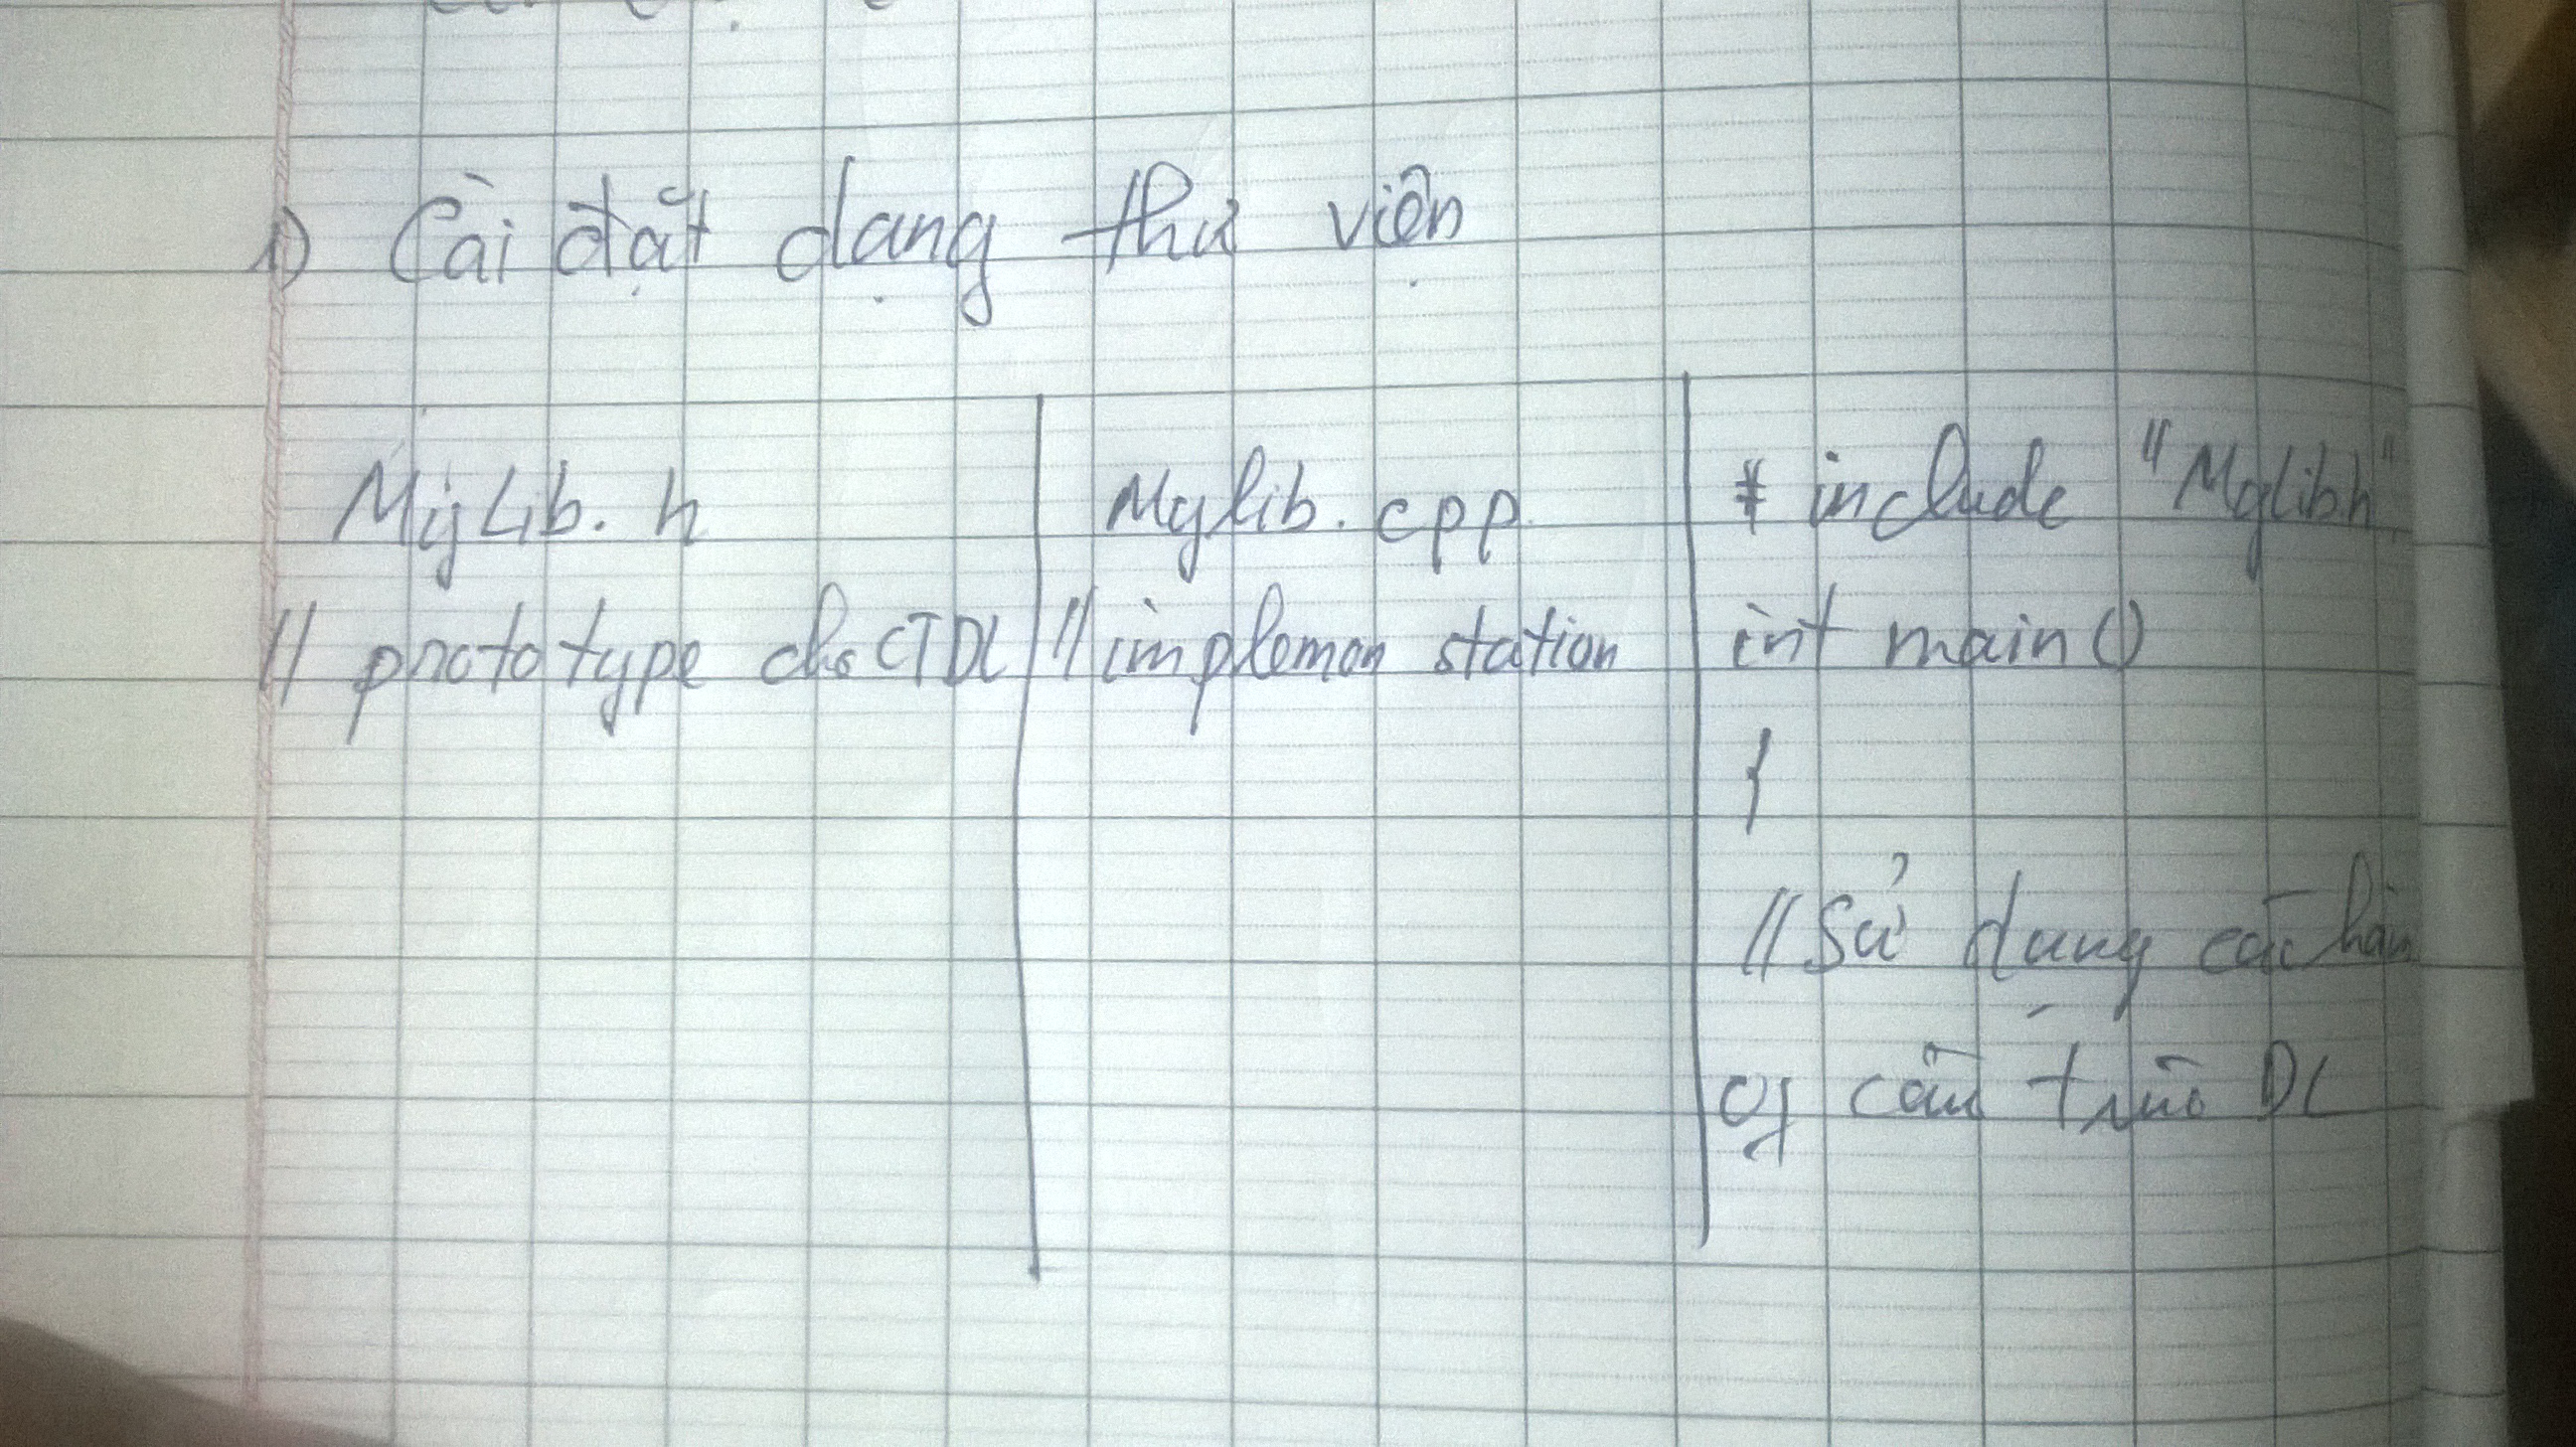 1) Cài đặt dạng thư viện
MyLib.h
// prototype cho CTDL
Mylib.cpp
// implemen station
# include "MyLib.h"
int main()
{
// Sử dụng các hàm
cấu trúc DL